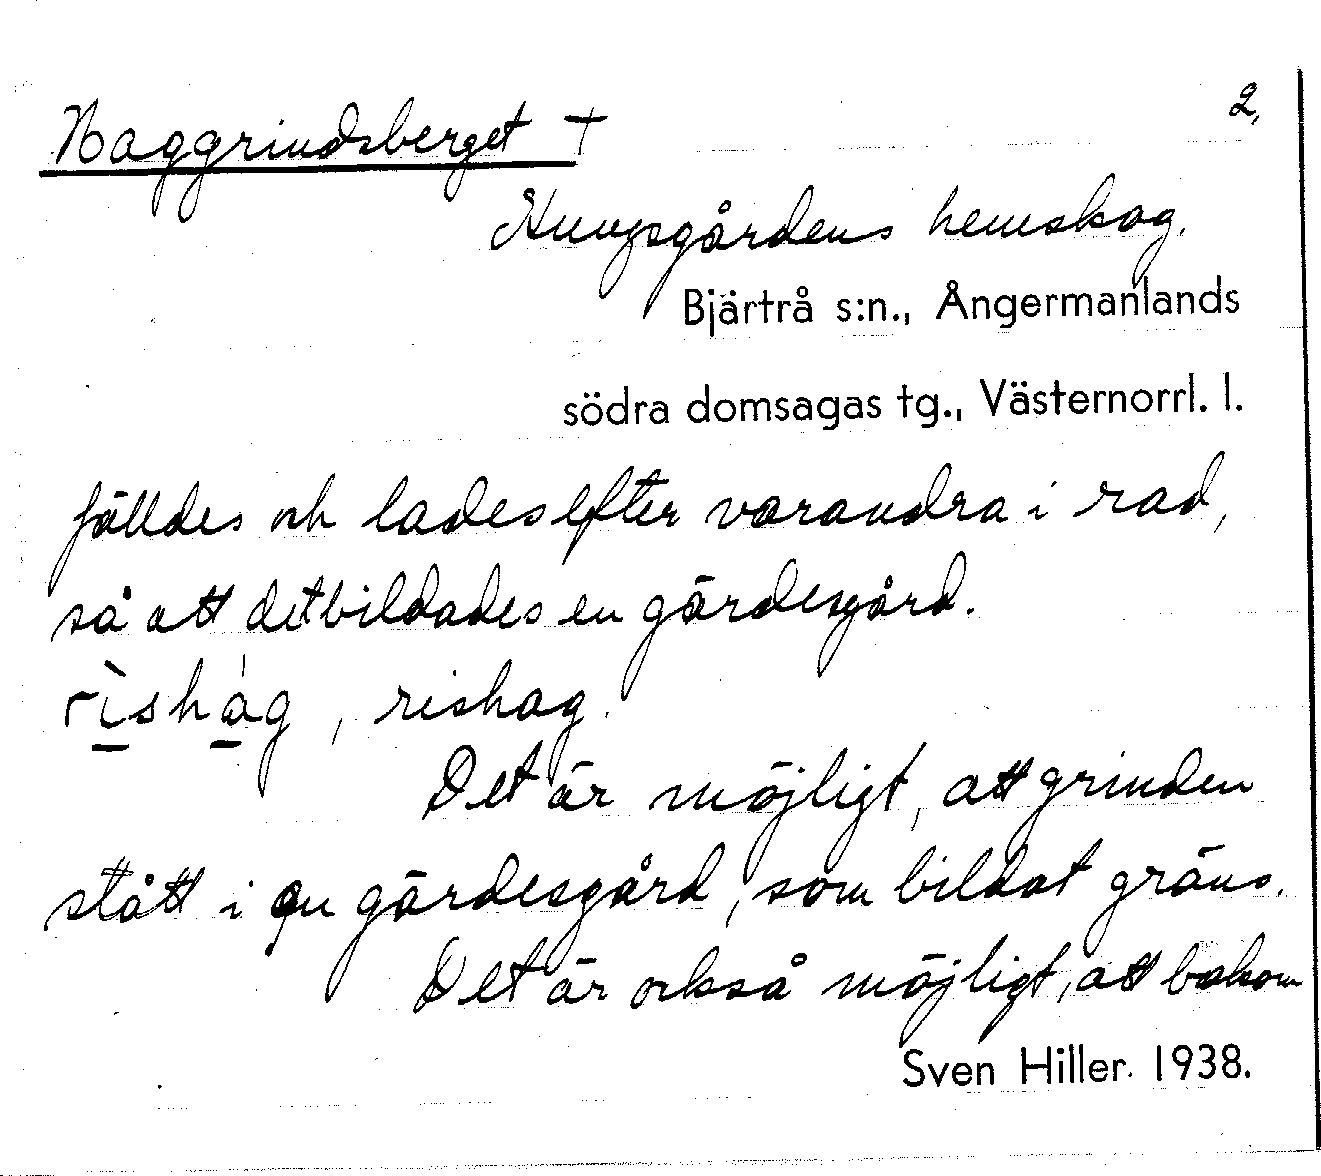 Haggrindsberget +
2,
Kungsgårdens hemskog.
Bjärtrå s:n., Ångermanlands
södra domsagas tg., Västernorrl. l.
fälldes och lades efter varandra i rad,
så att det bildades en gärdesgård.
rìshàg, rishag.
Det är möjligt, att grinden
stått i en gärdesgård, som bildat gräns.
Det är också möjligt, att bakom
Sven Hiller. 1938.